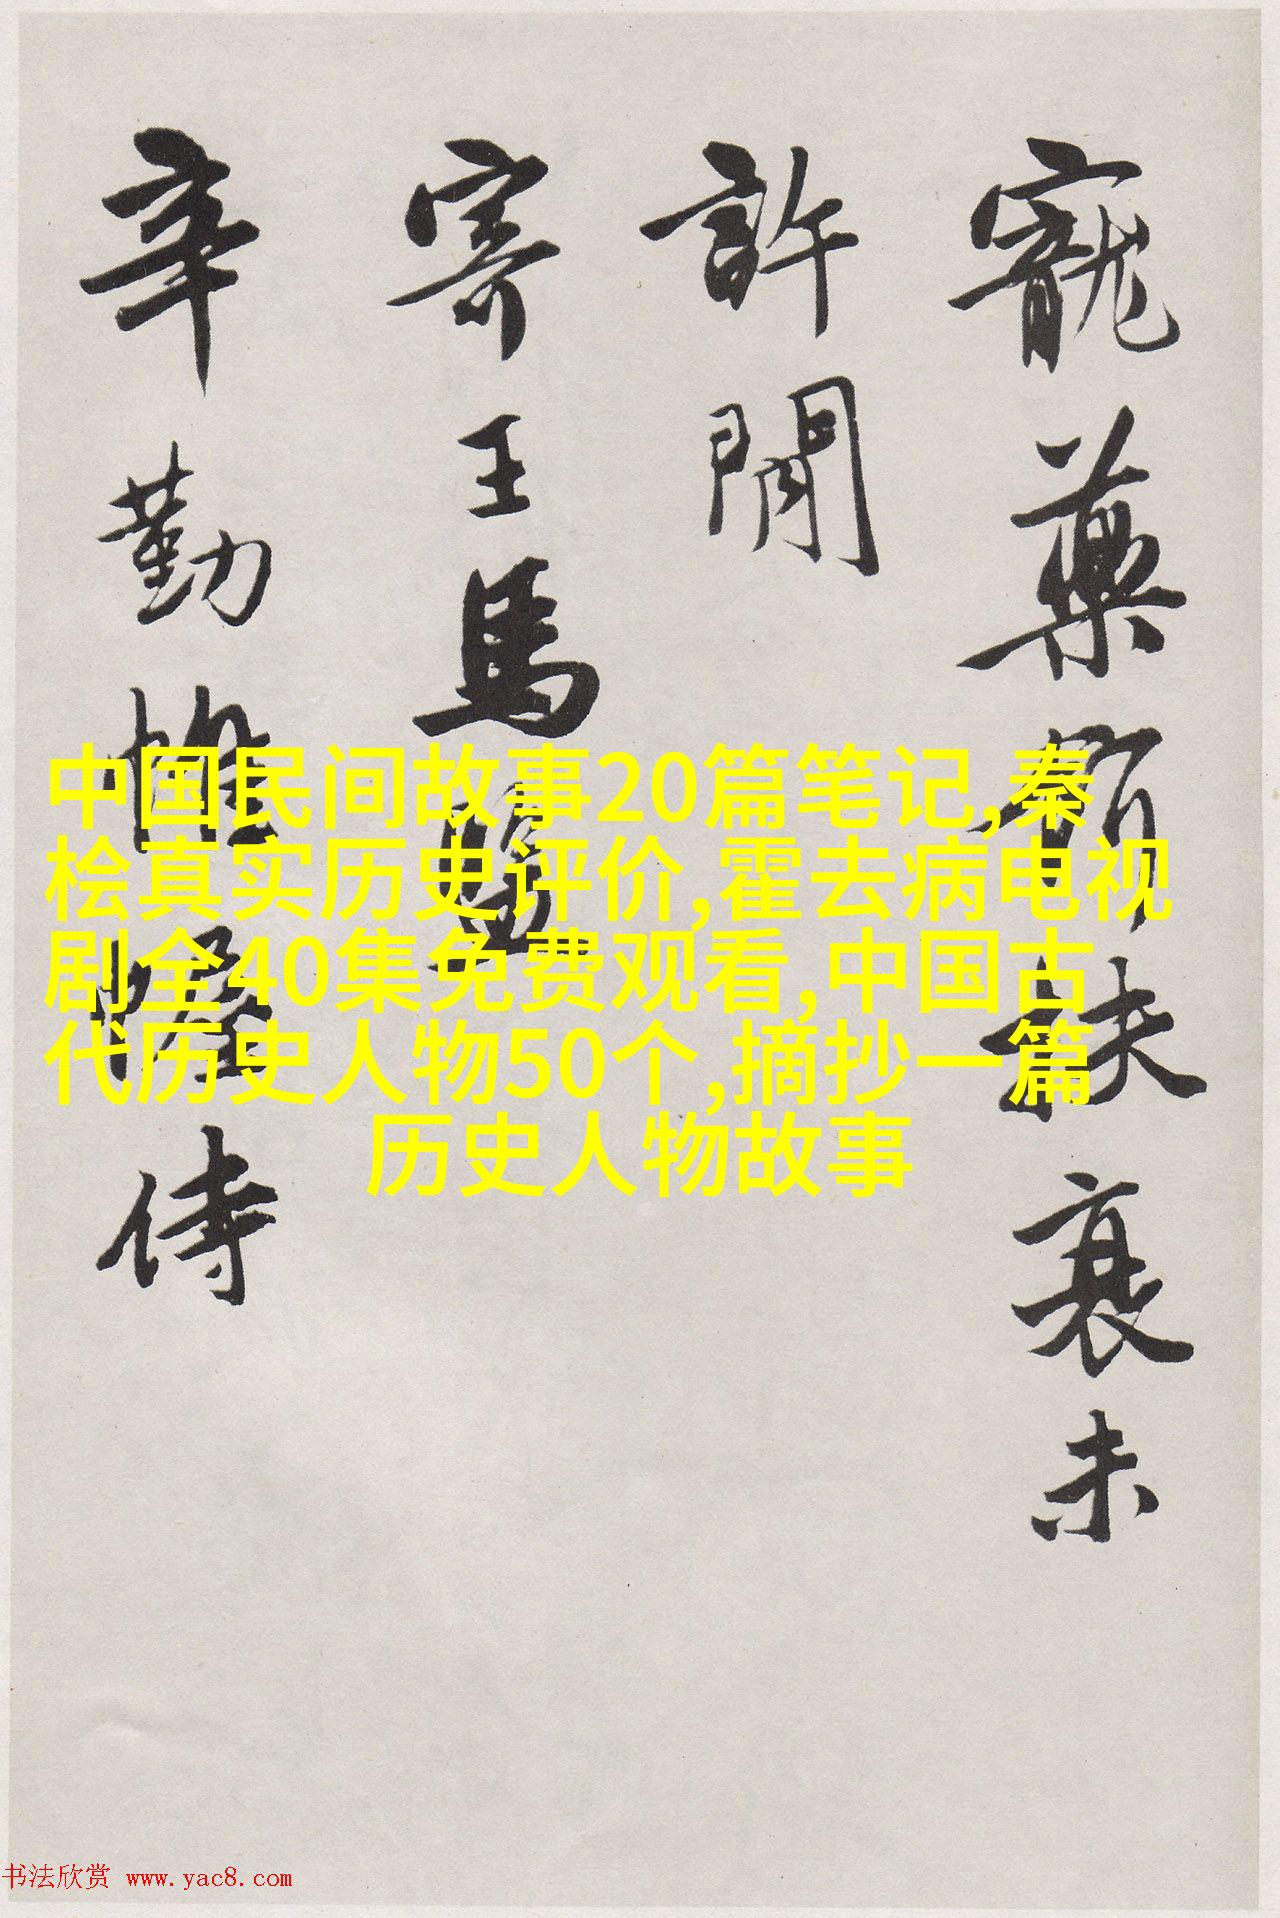 寵藥預扶衰未
許閒
寄王馬
辛勤惟幄侍
中国民间故事20篇笔记,秦
桧真实历史评价,霍去病电视
剧全40集免费观看,中国古
代历史人物50个,摘抄一篇
历史人物故事
书法欣赏 www.yac8.com